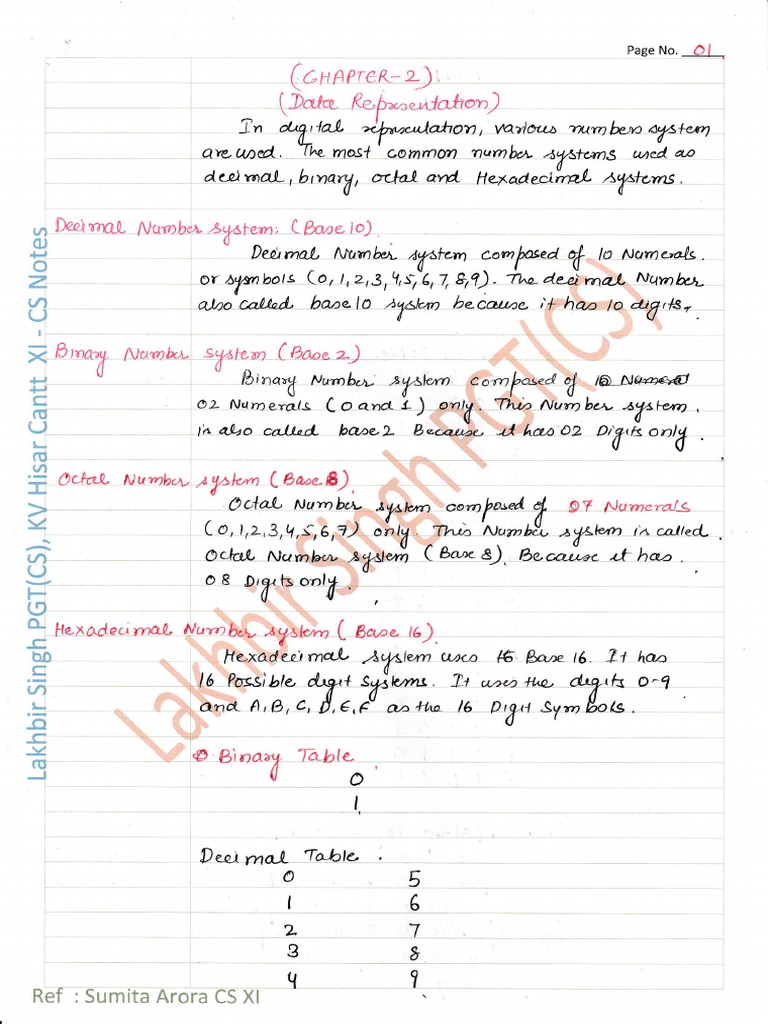 Page No. 01
(CHAPTER-2)
(Data Representation)
In digital representation, various numbers system
are used. The most common number systems used as
decimal, binary, octal and Hexadecimal systems.
Decimal Number system: (Base 10)
Decimal Number system composed of 10 Numerals.
or symbols (0,1,2,3,4,5,6,7,8,9). The decimal Number
also called base 10 system because it has 10 digits.
Binary Number system (Base 2)
Binary Number system composed of
02 Numerals (0 and 1) only. This Number system.
is also called base 2 Because it has 02 Digits only.
Octal Number system (Base 8)
Octal Number system composed of 07 Numerals
(0,1,2,3,4,5,6,7) only. This Number system is called
Octal Number system (Base 8). Because it has.
08 Digits only.
Hexadecimal Number system (Base 16)
Hexadecimal system uses Base 16. It has
16 Possible digit systems. It uses the digits 0-9
and A, B, C, D, E, F as the 16 Digit Symbols.
Binary Table
0
1
Decimal Table.
0 5
1 6
2 7
3 8
4 9
Lakhbir Singh PGT(CS), KV Hisar Cantt XI - CS Notes
Lakhbir Singh PGT(CS)
Ref : Sumita Arora CS XI